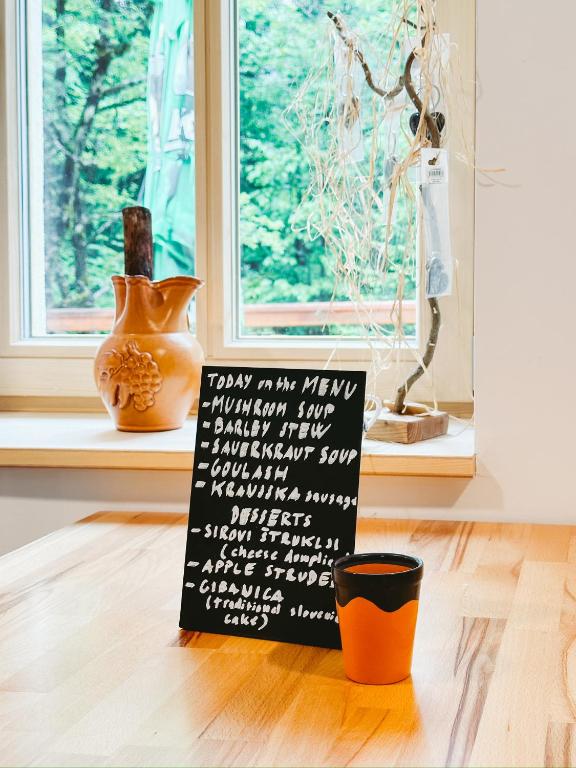 TODAY on the MENU
- MUSHROOM SOUP
- BARLEY STEW
- SAUERKRAUT SOUP
- GOULASH
- KRANJSKA sausage
DESSERTS
- SIROVI ŠTRUKLJI
(cheese
- APPLE
- GIBANICA
(traditional
cake)